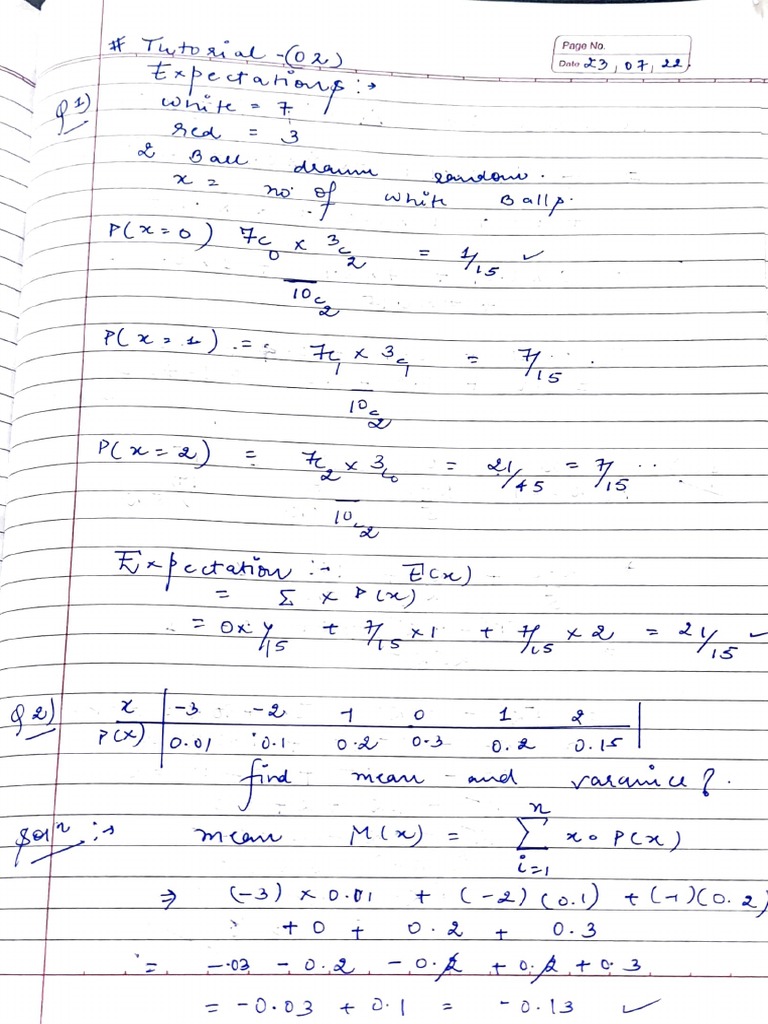 # Tutorial -(02)
Page No.
Date 23, 07, 22.
Expectations :→
Q 1) white = 7
red = 3
2 Ball drawn random.
x = no. of white Balls.
P(x=0) 7c0 x 3c2 = 1/15 ✓
10c2
P(x=1) = 7c1 x 3c1 = 7/15
10c2
P(x=2) = 7c2 x 3c0 = 21/45 = 7/15
10c2
Expectation :→ E(x)
= Σ x P(x)
= 0x 1/15 + 7/15 x1 + 7/15 x 2 = 21/15 ✓
Q 2) x | -3 -2 -1 0 1 2
P(X) | 0.01 0.1 0.2 0.3 0.2 0.15
find mean and varanice ?
Solⁿ :→ mean M(x) = n Σ i=1 x. P(x)
⇒ (-3) x 0.01 + (-2) (0.1) + (-1)(0.2)
+ 0 + 0.2 + 0.3
= -.03 - 0.2 - 0.2 + 0.2 + 0.3
= -0.03 + 0.1 = -0.13 ✓